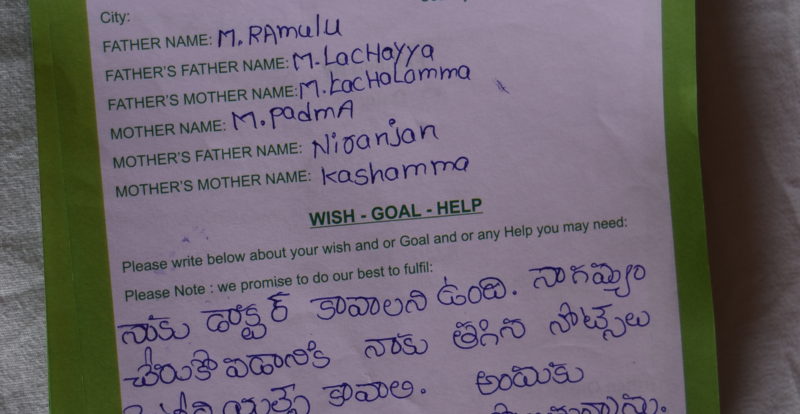 City:
FATHER NAME: M. RAmulu
FATHER'S FATHER NAME: M. LacHayya
FATHER'S MOTHER NAME: M. LacHalamma
MOTHER NAME: M. PadmA
MOTHER'S FATHER NAME: Niranjan
MOTHER'S MOTHER NAME: Kashamma
WISH - GOAL - HELP
Please write below about your wish and or Goal and or any Help you may need:
Please Note : we promise to do our best to fulfil:
నాకు డాక్టర్ కావాలని ఉంది. నాగమ్యం
చేరుకోవడానికి నాకు తగిన నోట్సులు
కావాలి. అందుకు